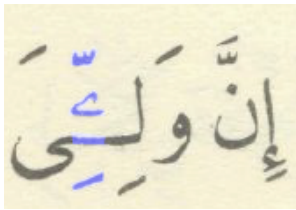 إِنَّ وَلِـِّۧیَ